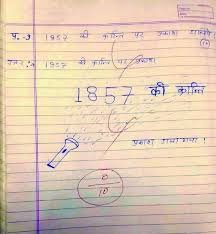 प्र.-9 1957 की क्रान्ति पर प्रकाश डालिये।
(10)
उत्तर:- 1957 की क्रान्ति पर प्रकाश
1857 की क्रान्ति
प्रकाश डाला गया।
0
10